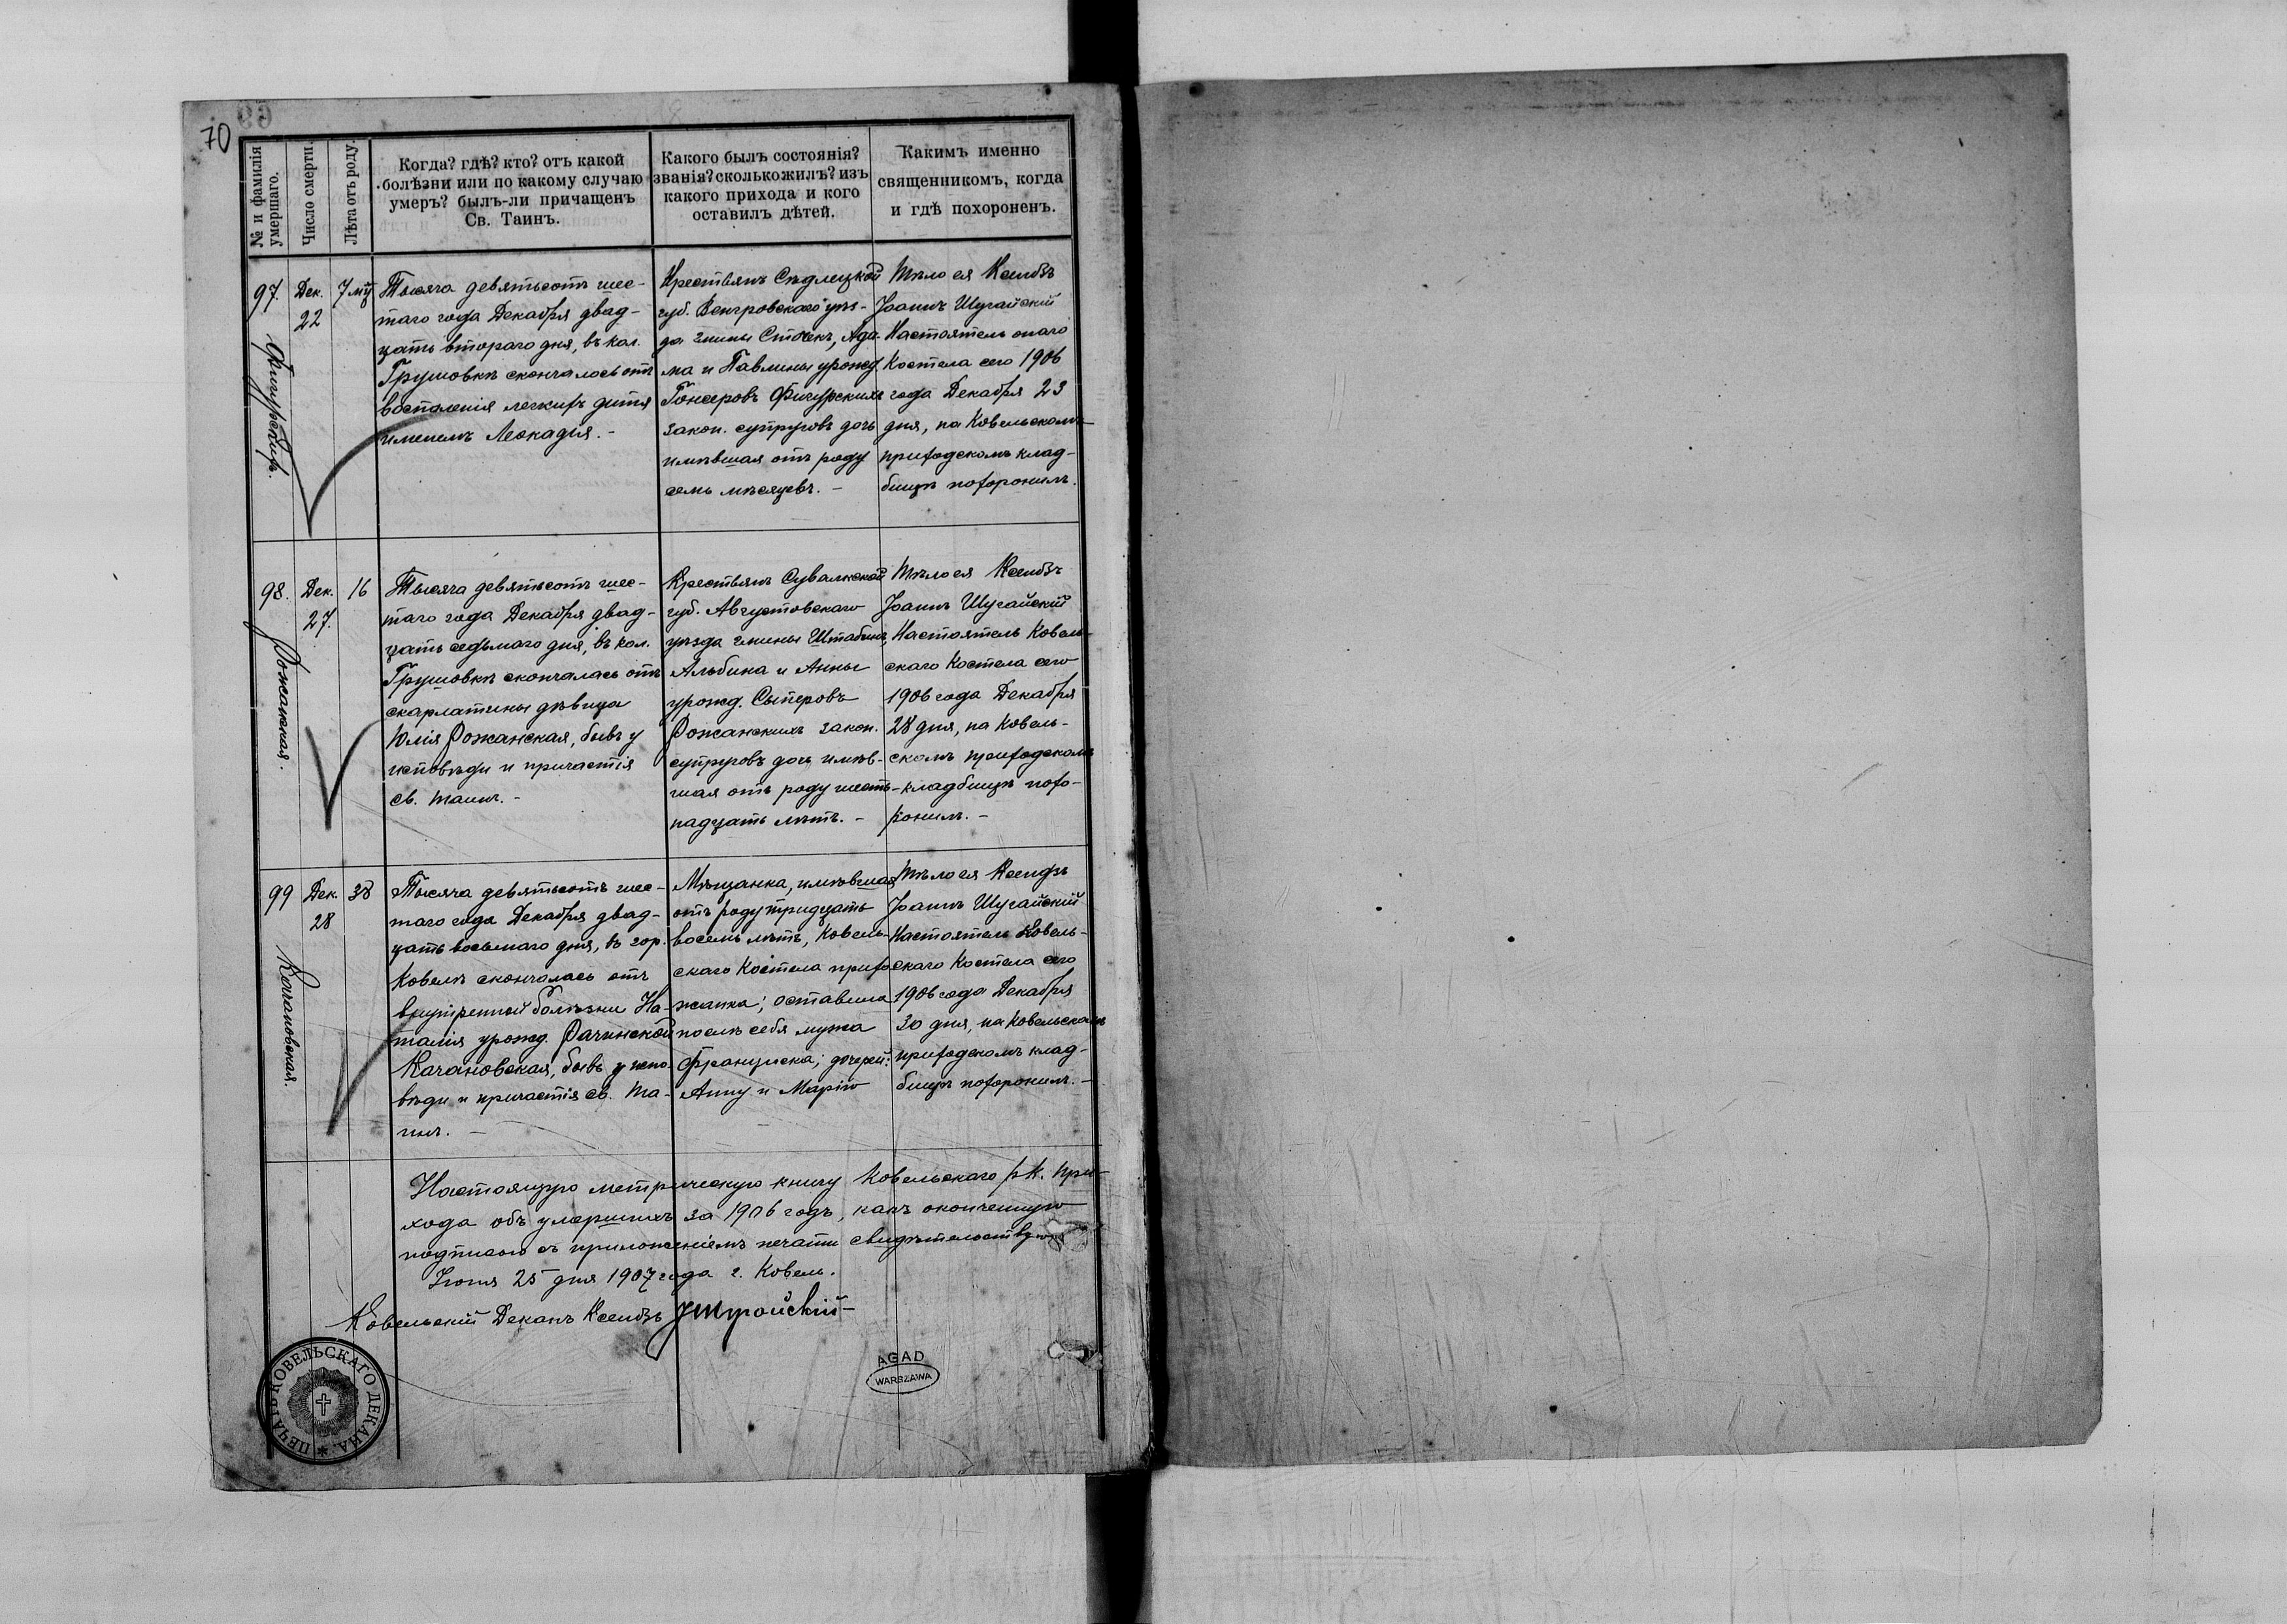 70
№ и фамилія
умершаго.
Число смерти.
Лѣта отъ роду.
Когда? гдѣ? кто? отъ какой
болѣзни или по какому случаю
умеръ? былъ-ли причащенъ
Св. Таинъ.
Какого былъ состоянія?
званія? сколько жилъ? изъ
какого прихода и кого
оставилъ дѣтей.
Какимъ именно
священникомъ, когда
и гдѣ похороненъ.
97.
Дек.
22
7 мц
Тысяча девятьсотъ шес-
таго года Декабря двад-
цать втораго дня, въ кол.
Грушовкѣ скончалось отъ
воспаленія легкихъ дитя
именемъ Леокадія. -
Крестьянъ Сѣдлецкой
губ. Венгровскаго уѣз-
да гмины Сточек, Ада-
ма и Павлины урожд.
Гонсеровъ Фигурскихъ
закон. супруговъ дочь
имѣвшая отъ роду
семь мѣсяцевъ. -
Тѣло ея Ксендзъ
Іоаннъ Шугайскій
Настоятель онаго
Костела сего 1906
года Декабря 23
дня, на Ковельскомъ
приходскомъ клад-
бищѣ похоронилъ.
98.
Рожанская.
Дек.
27.
16
Тысяча девятьсотъ шес-
таго года Декабря двад-
цать седьмаго дня, въ кол.
Грушовкѣ скончалась отъ
скарлатины дѣвица
Юлія Рожанская, бывъ у
исповѣди и причастія
св. таинъ. -
Крестьянъ Сувалкской
губ. Августовскаго
уѣзда гмины Штабинъ,
Альбина и Анны
урожд. Сыперовъ
Рожанскихъ закон.
супруговъ дочь имѣв-
шая отъ роду шесть-
надцать лѣтъ. -
Тѣло ея Ксендзъ
Іоаннъ Шугайскій
Настоятель Ковель-
скаго Костела сего
1906 года Декабря
28 дня, на Ковель-
скомъ приходскомъ
кладбищѣ похо-
ронилъ. -
99
Качановская.
Дек.
28
38
Тысяча девятьсотъ шес-
таго года Декабря двад-
цать восьмаго дня, въ гор.
Ковелѣ скончалась отъ
внутренной болѣзни На-
талія урожд. Рачинской
Качановская, бывъ у испо-
вѣди и причастія св. Та-
инъ. -
Мѣщанка, имѣвшая
отъ роду тридцать
восемь лѣтъ, Ковель-
скаго Костела прихо-
жанка; оставила
послѣ себя мужа
Франциска; дочерей:
Анну и Марію
Тѣло ея Ксендзъ
Іоаннъ Шугайскій
Настоятель Ковель-
скаго Костела сего
1906 года Декабря
30 дня, на Ковельскомъ
приходскомъ клад-
бищѣ похоронилъ. -
Настоящую метрическую книгу Ковельскаго р.к. при-
хода объ умершихъ за 1906 годъ, какъ оконченную
подписью съ приложеніемъ печати свидѣтельствую
Іюня 25 дня 1907 года г. Ковель.
Ковельскій Деканъ Ксендзъ
ПЕЧАТЬ КОВЕЛЬСКАГО ДЕКАНА.
AGAD
WARSZAWA